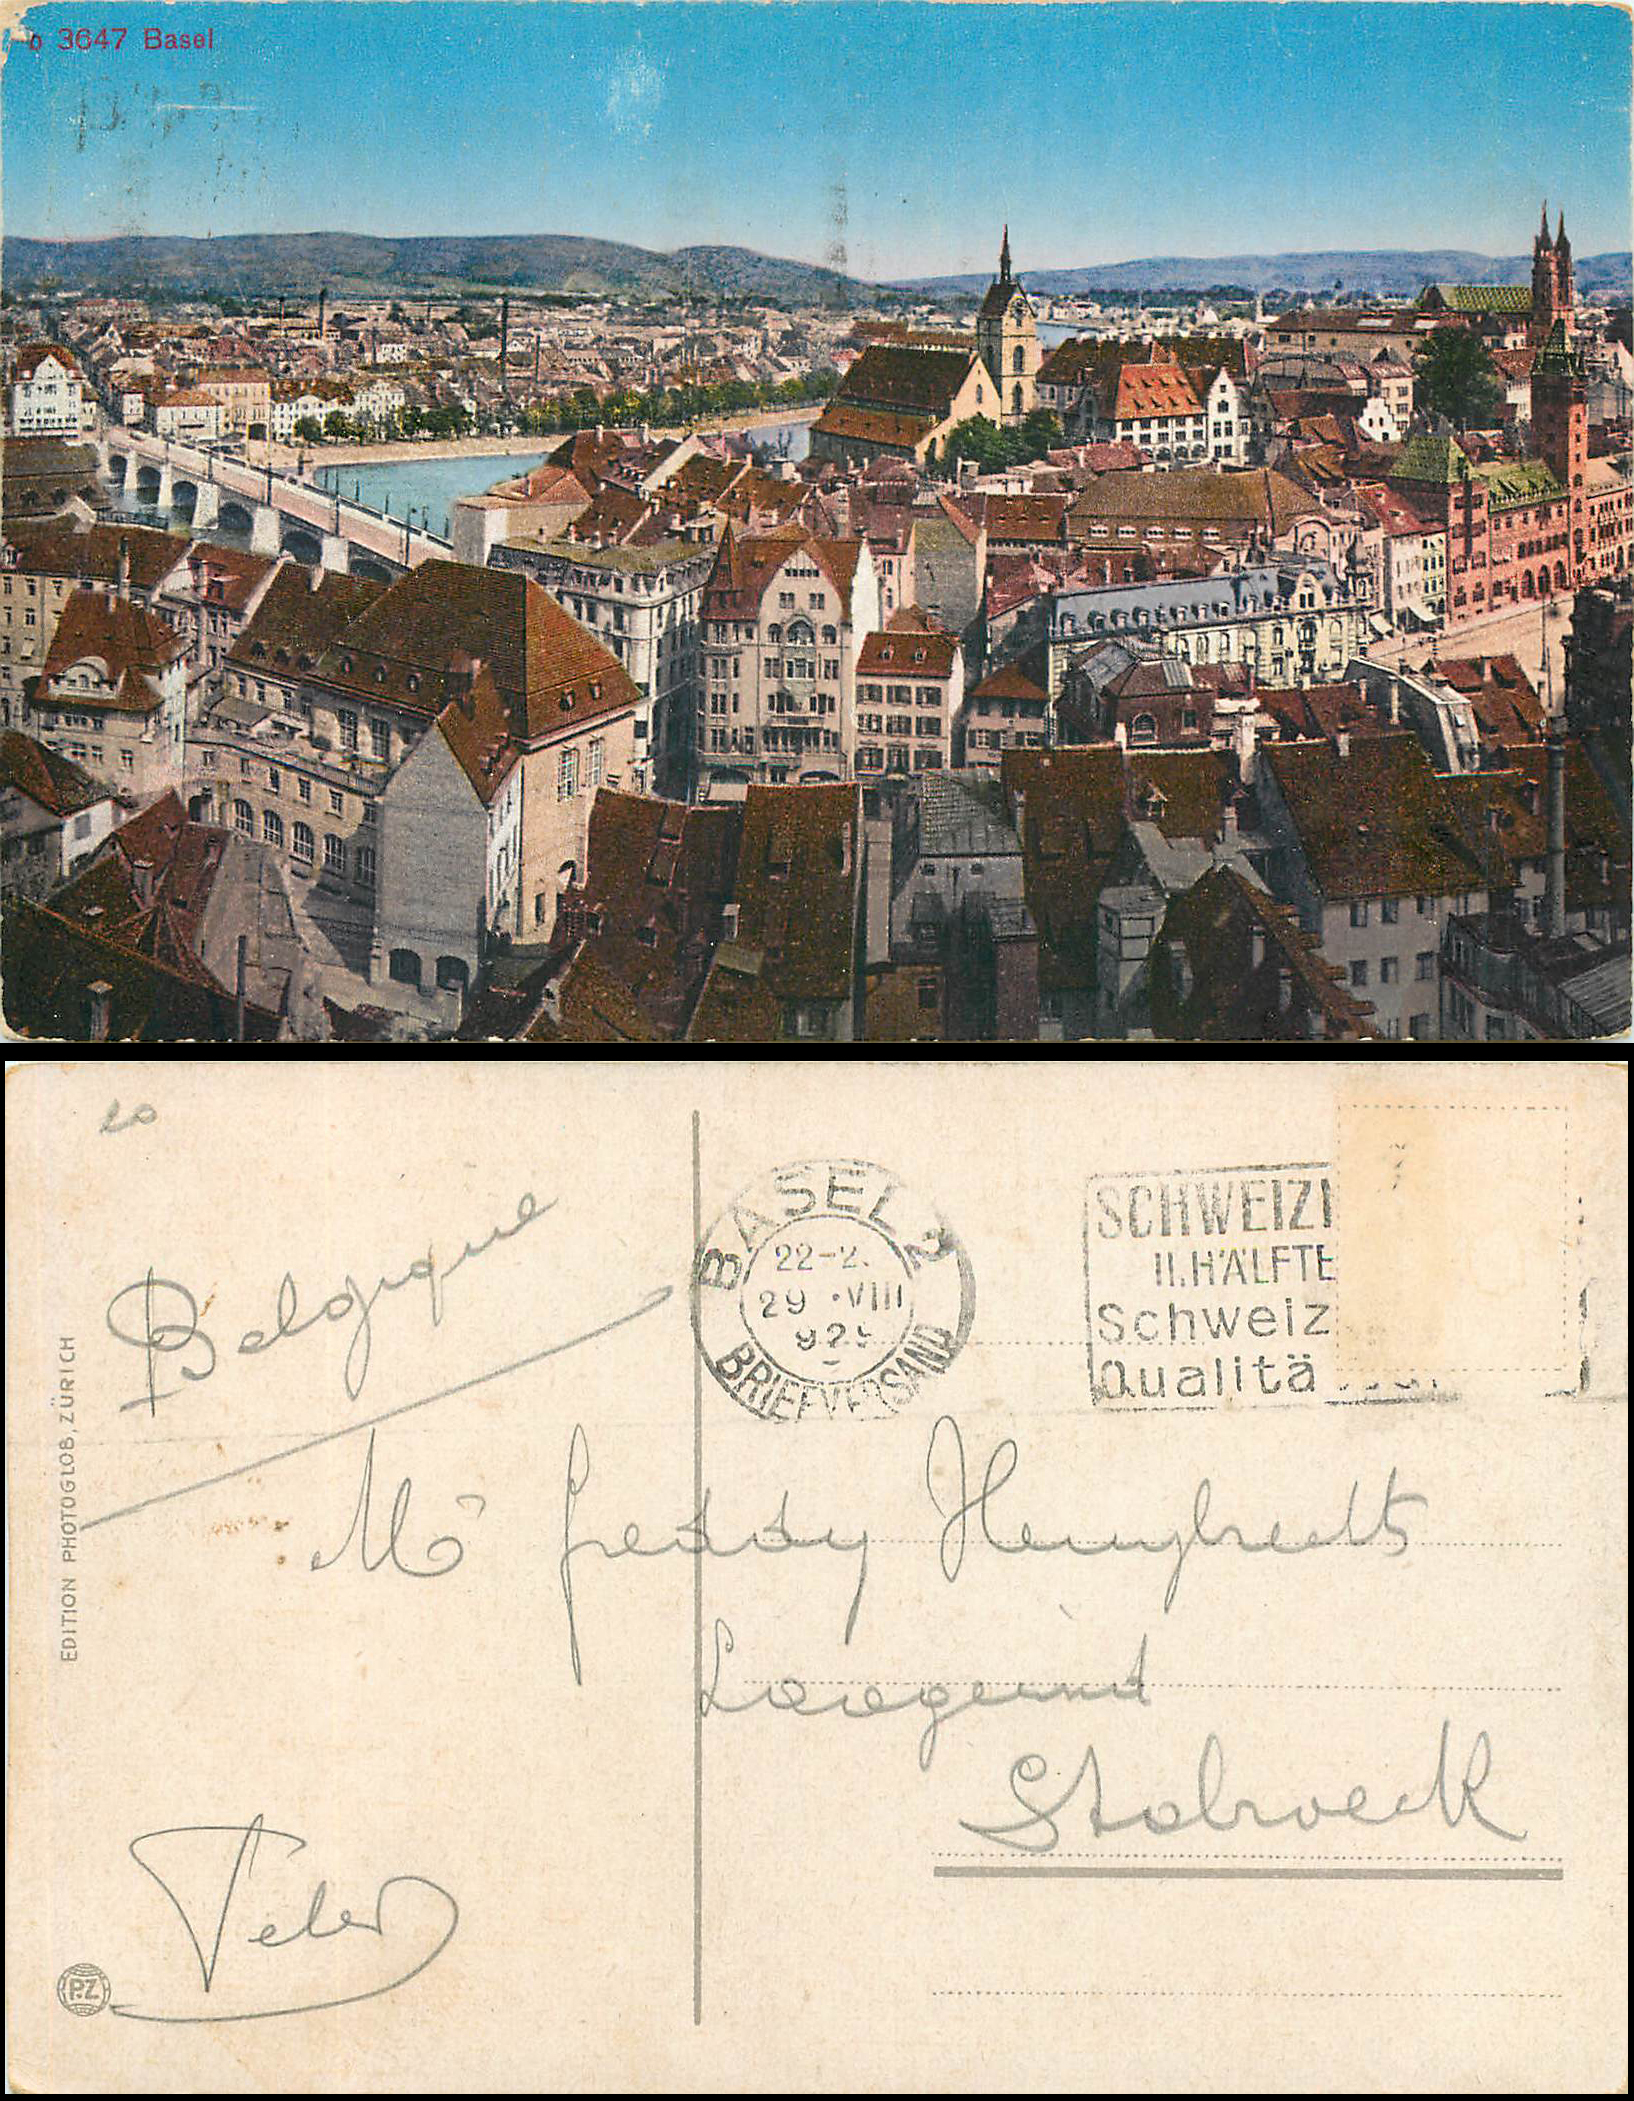 3647 Basel
20
Belgique
BASEL 2
22-2.
29 .VIII
BRIEFVERSAND
SCHWEIZ
II. HÄLFTE
Schweiz
Qualitä
Mr Freddy
Stabroeck
Peter
EDITION PHOTOGLOB, ZÜRICH
P.Z